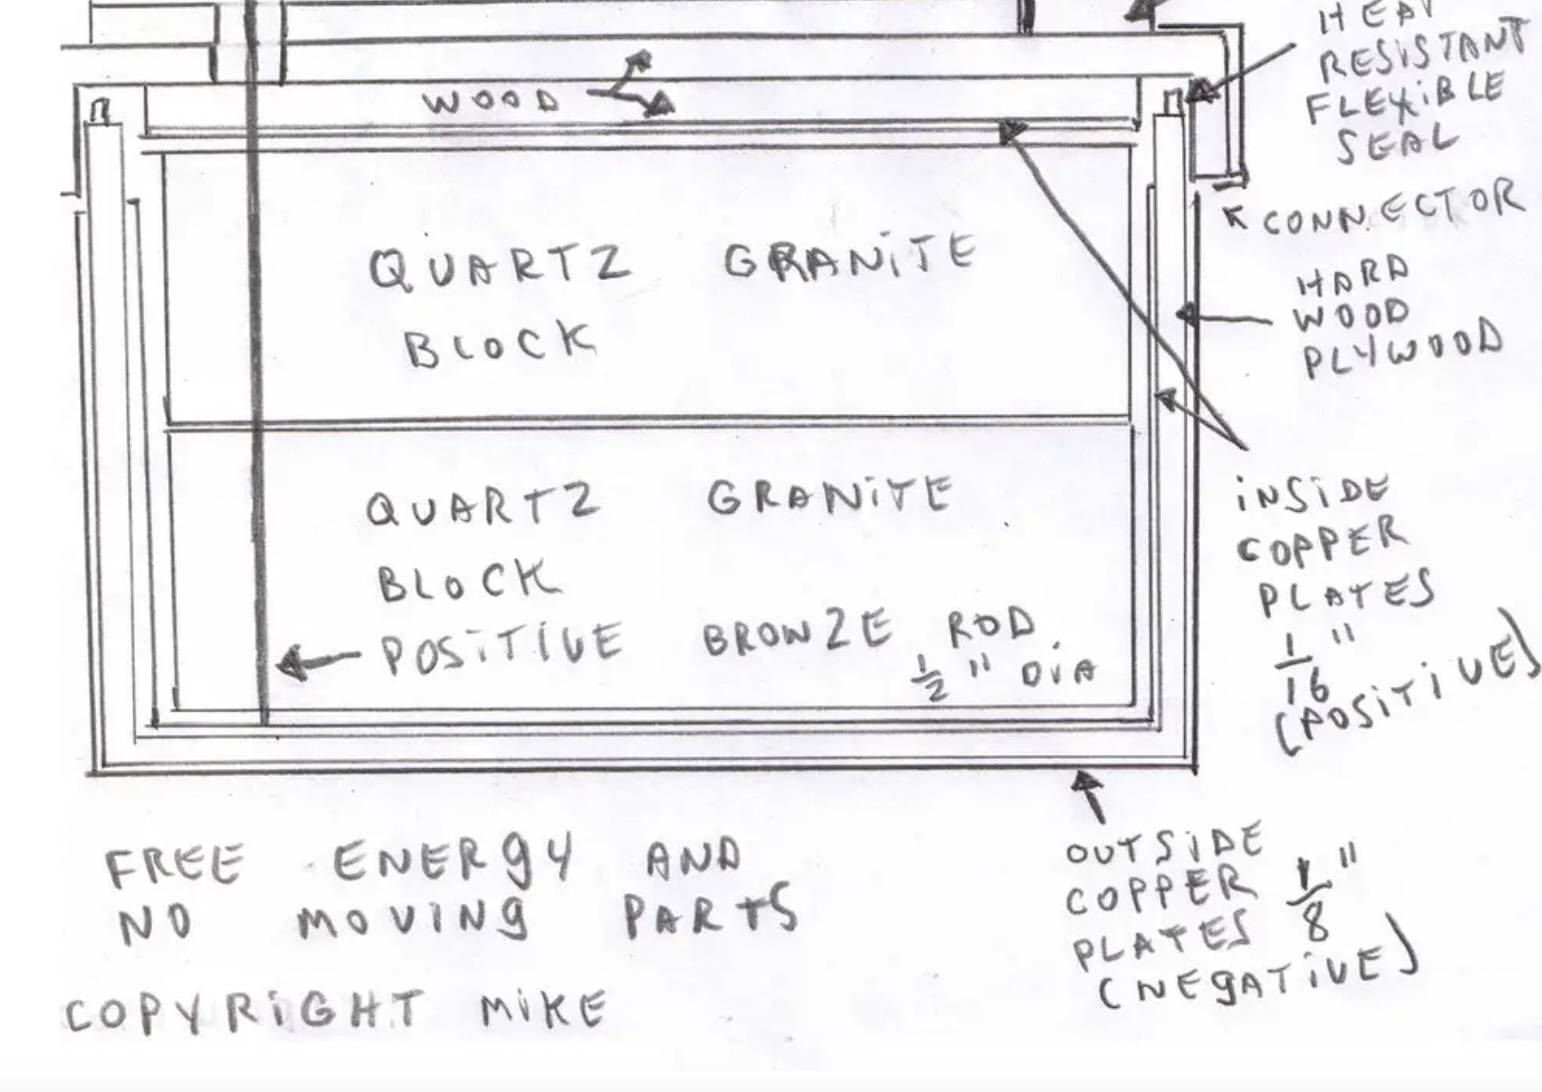 HEAT
RESISTANT
FLEXIBLE
SEAL
WOOD
CONNECTOR
HARD
WOOD
PLYWOOD
QUARTZ GRANITE
BLOCK
QUARTZ GRANITE
BLOCK
POSITIVE BRONZE ROD
1/2" DIA
INSIDE
COPPER
PLATES
1/16"
(POSITIVE)
OUTSIDE
COPPER
PLATES 1/8"
(NEGATIVE)
FREE ENERGY AND
NO MOVING PARTS
COPYRIGHT MIKE